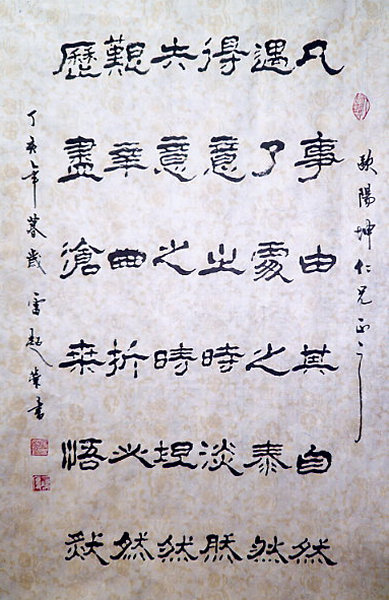 歐陽坤仁兄正之
凡事由其自然
遇了處之泰然
得意之時淡然
失意之時坦然
艱辛曲折必然
歷盡滄桑悟然
丁亥年暮歲 雷 書